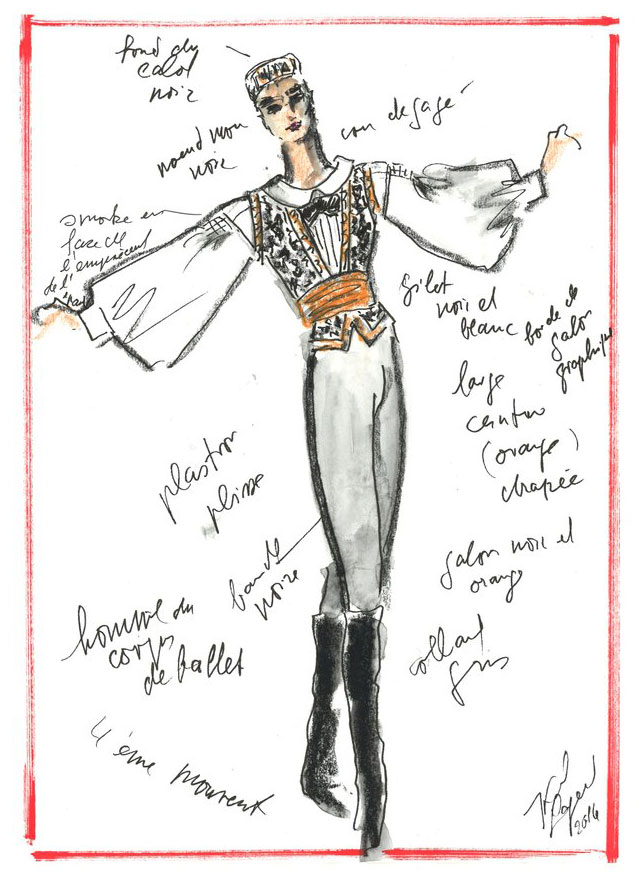 fond du
calot
noir
noeud mou
noir
cou degagé
smoke en
face de
l'empiecement
de l'
gilet
noir et
blanc
bordé de
galon
graphique
large
ceinture
(orange)
drapée
plastron
plisse
bande
noire
galon noir et
orange
homme du
corps
de ballet
collant
gris
4 ème mouvent
2016